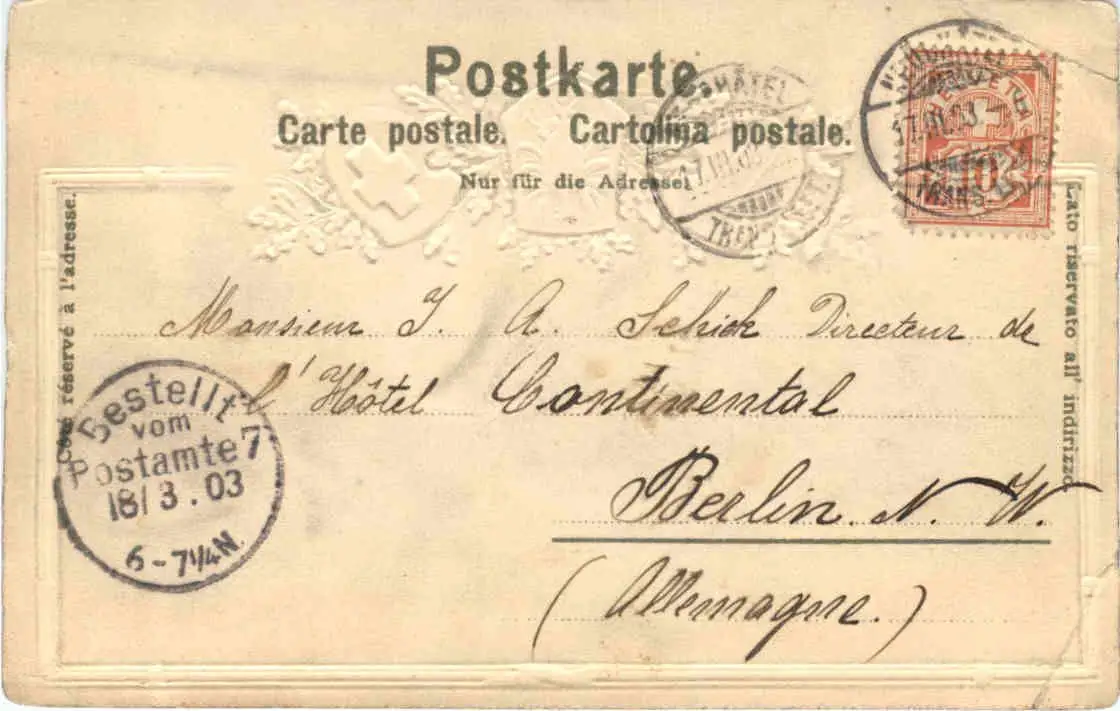 Postkarte.
Carte postale. Cartolina postale.
Nur für die Adresse!
HELVETIA
10
17.III.03
17.III.03
Côté réservé à l'adresse.
Lato riservato all' indirizzo.
Monsieur J. A. Schick Directeur de
l'Hôtel Continental
Berlin. N. W.
(Allemagne.)
Bestellt
vom
Postamte 7
18/3.03
6-7¼N.